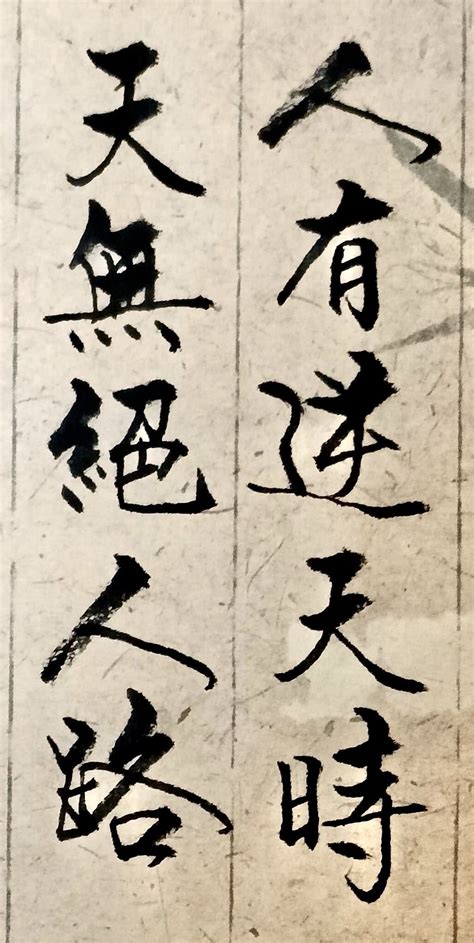 人有逆天時
天無絕人路